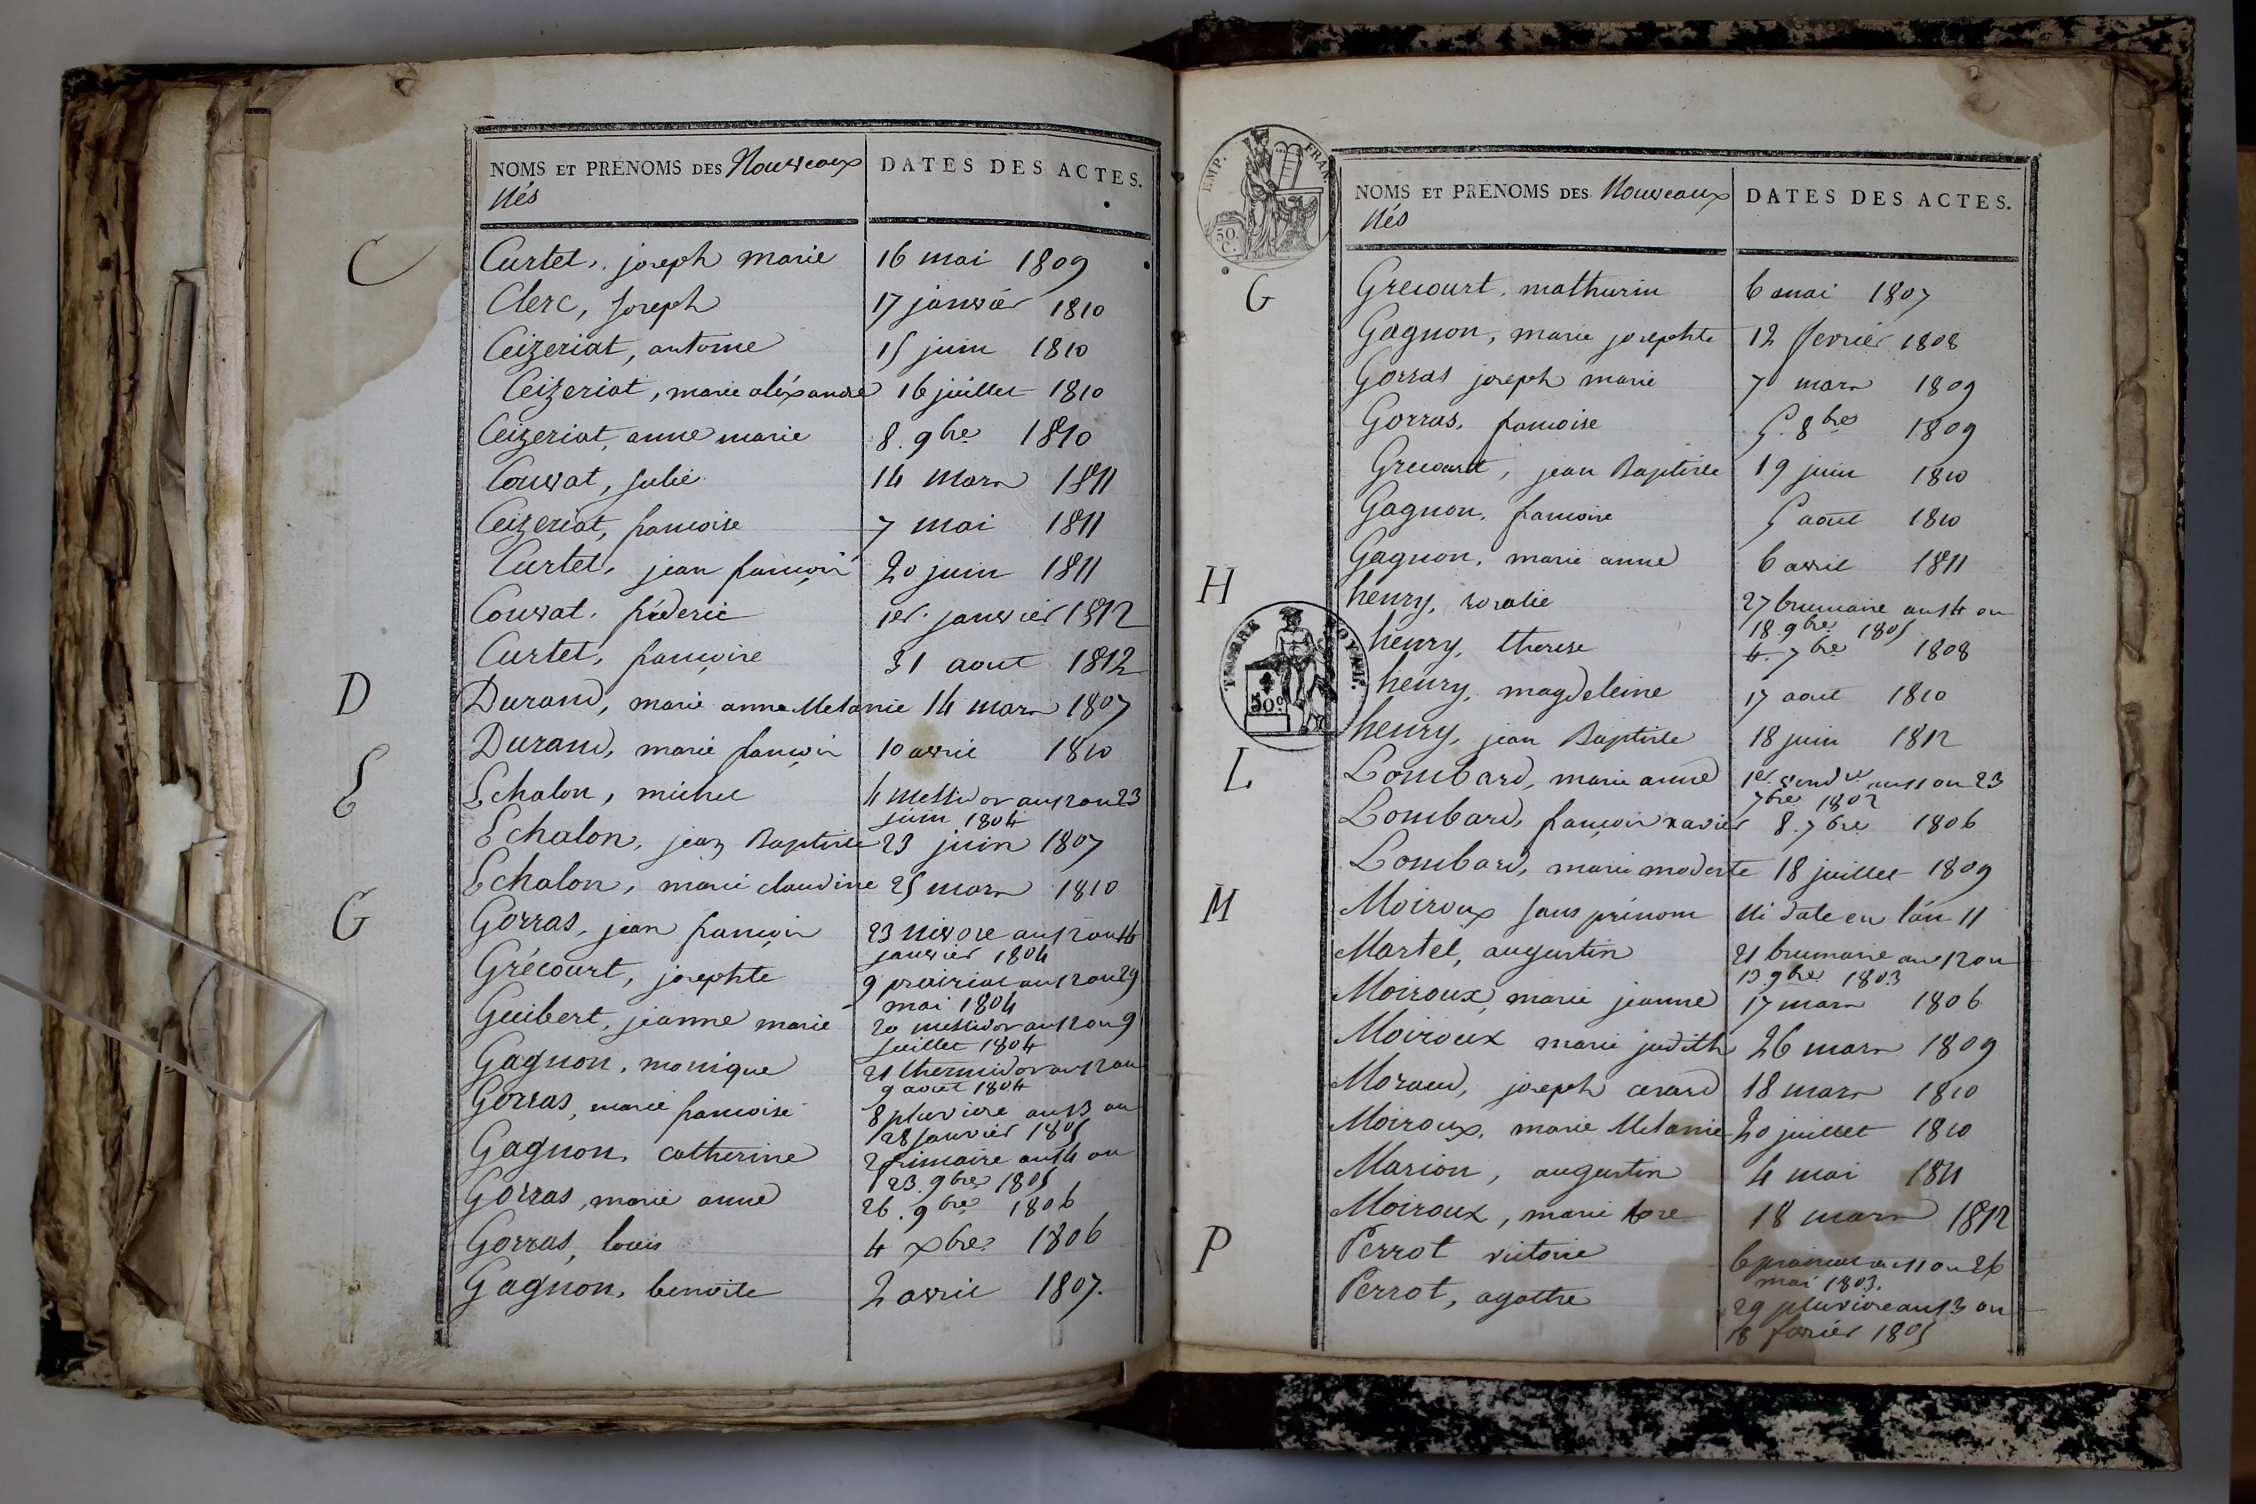 NOMS ET PRÉNOMS DES Nouveaux
Nés
DATES DES ACTES.
C
Curtet, joseph marie 16 mai 1809
Clerc, joseph 17 janvier 1810
Ceizeriat, antoine 15 juin 1810
Ceizeriat, marie aléxandre 16 juillet 1810
Ceizeriat, anne marie 8. 9bre 1810
Couvat, julie 14 mars 1811
Ceizeriat, francoise 7 mai 1811
Curtet, jean françois 20 juin 1811
Couvat, féderic 1er. janvier 1812
Curtet, françoise 31 aout 1812
D
Durand, marie anne Melanie 14 mars 1807
Durand, marie françois 10 avril 1810
E
Echalon, michel 4 messidor an 12 ou 23
juin 1804
Echalon, jean Baptiste 23 juin 1807
Echalon, marie claudine 25 mars 1810
G
Gorras, jean françois 23 nivose an 12 ou 14
janvier 1804
Grécourt, josephte 9 prairial an 12 ou 29
mai 1804
Guibert, jeanne marie 20 messidor an 12 ou 9
juillet 1804
Gagnon, monique 21 thermidor an 12 ou
9 aout 1804
Gorras, marie francoise 8 pluviose an 13 ou
28 janvier 1805
Gagnon, catherine 2 frimaire an 14 ou
23. 9bre 1805
Gorras, marie anne 26. 9bre 1806
Gorras, louis 4 xbre 1806
Gagnon, benoite 2 avril 1807.
EMP. FRAN.
50.
C.
NOMS ET PRÉNOMS DES Nouveaux
Nés
DATES DES ACTES.
G
Grecourt, mathurin 6 mai 1807
Gagnon, marie josephte 12 fevrier 1808
Gorras joseph marie 7 mars 1809
Gorras, francoise 5. 8bre 1809
Grecourt, jean Baptiste 19 juin 1810
Gagnon, francoise 5 aout 1810
Gagnon, marie anne 6 avril 1811
H
henry, rosalie 27 brumaire an 14 ou
18. 9bre 1805
TIMBRE ROYAL.
50c
henry, therese 4. 7bre 1808
henry, magdeleine 17 aout 1810
henry, jean Baptiste 18 juin 1812
L
Lombard, marie anne 1er vendre an 11 ou 23
7bre 1802
Lombard, françois xavier 8. 7bre 1806
Lombard, marie modeste 18 juillet 1809
M
Moiroux sans prénom Ni date en l'an 11
Martel, augustin 21 brumaire an 12 ou
13. 9bre 1803
Moiroux, marie jeanne 17 mars 1806
Moiroux marie judith 26 mars 1809
joseph 18 mars 1810
Moiroux, marie Melanie 20 juillet 1810
Marion, augustin 4 mai 1811
Moiroux, marie 18 mars 1812
P
Perrot victoire 6 prairial an 11 ou 26
mai 1803.
Perrot, agathe 29 pluviose an 13 ou
18 fevrier 1805